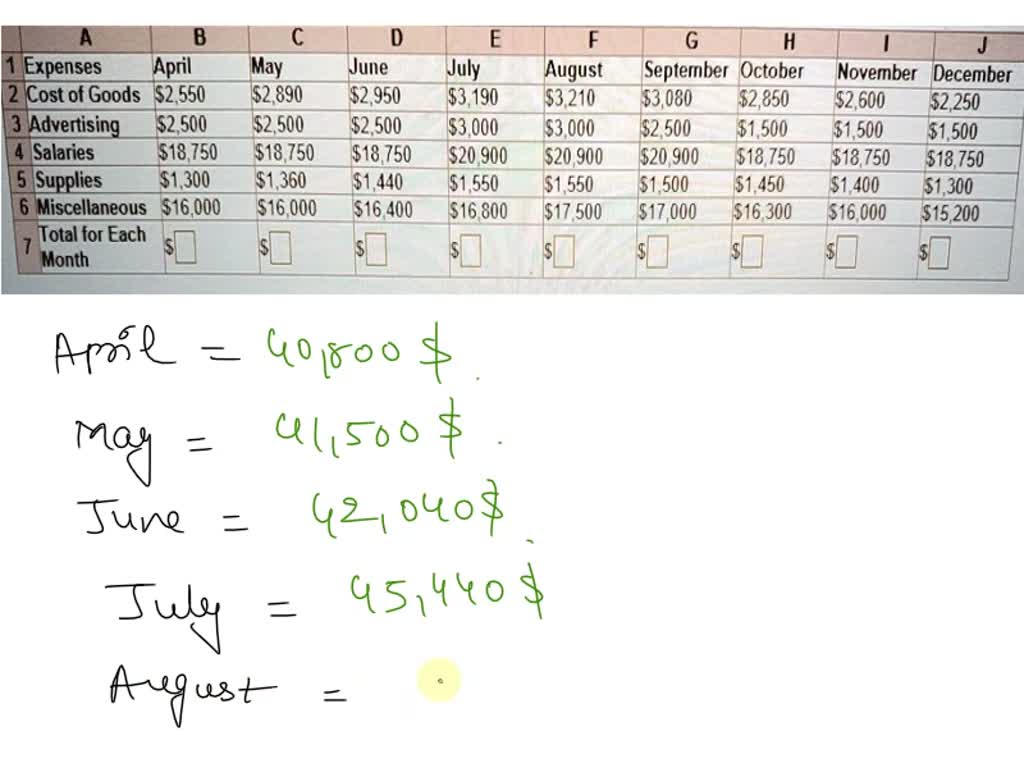 A B C D E F G H I J
1 Expenses April May June July August September October November December
2 Cost of Goods $2,550 $2,890 $2,950 $3,190 $3,210 $3,080 $2,850 $2,600 $2,250
3 Advertising $2,500 $2,500 $2,500 $3,000 $3,000 $2,500 $1,500 $1,500 $1,500
4 Salaries $18,750 $18,750 $18,750 $20,900 $20,900 $20,900 $18,750 $18,750 $18,750
5 Supplies $1,300 $1,360 $1,440 $1,550 $1,550 $1,500 $1,450 $1,400 $1,300
6 Miscellaneous $16,000 $16,000 $16,400 $16,800 $17,500 $17,000 $16,300 $16,000 $15,200
7 Total for Each Month $ $ $ $ $ $ $ $ $
April = 40,800 $
May = 41,500 $
June = 42,040 $
July = 45,440 $
August =